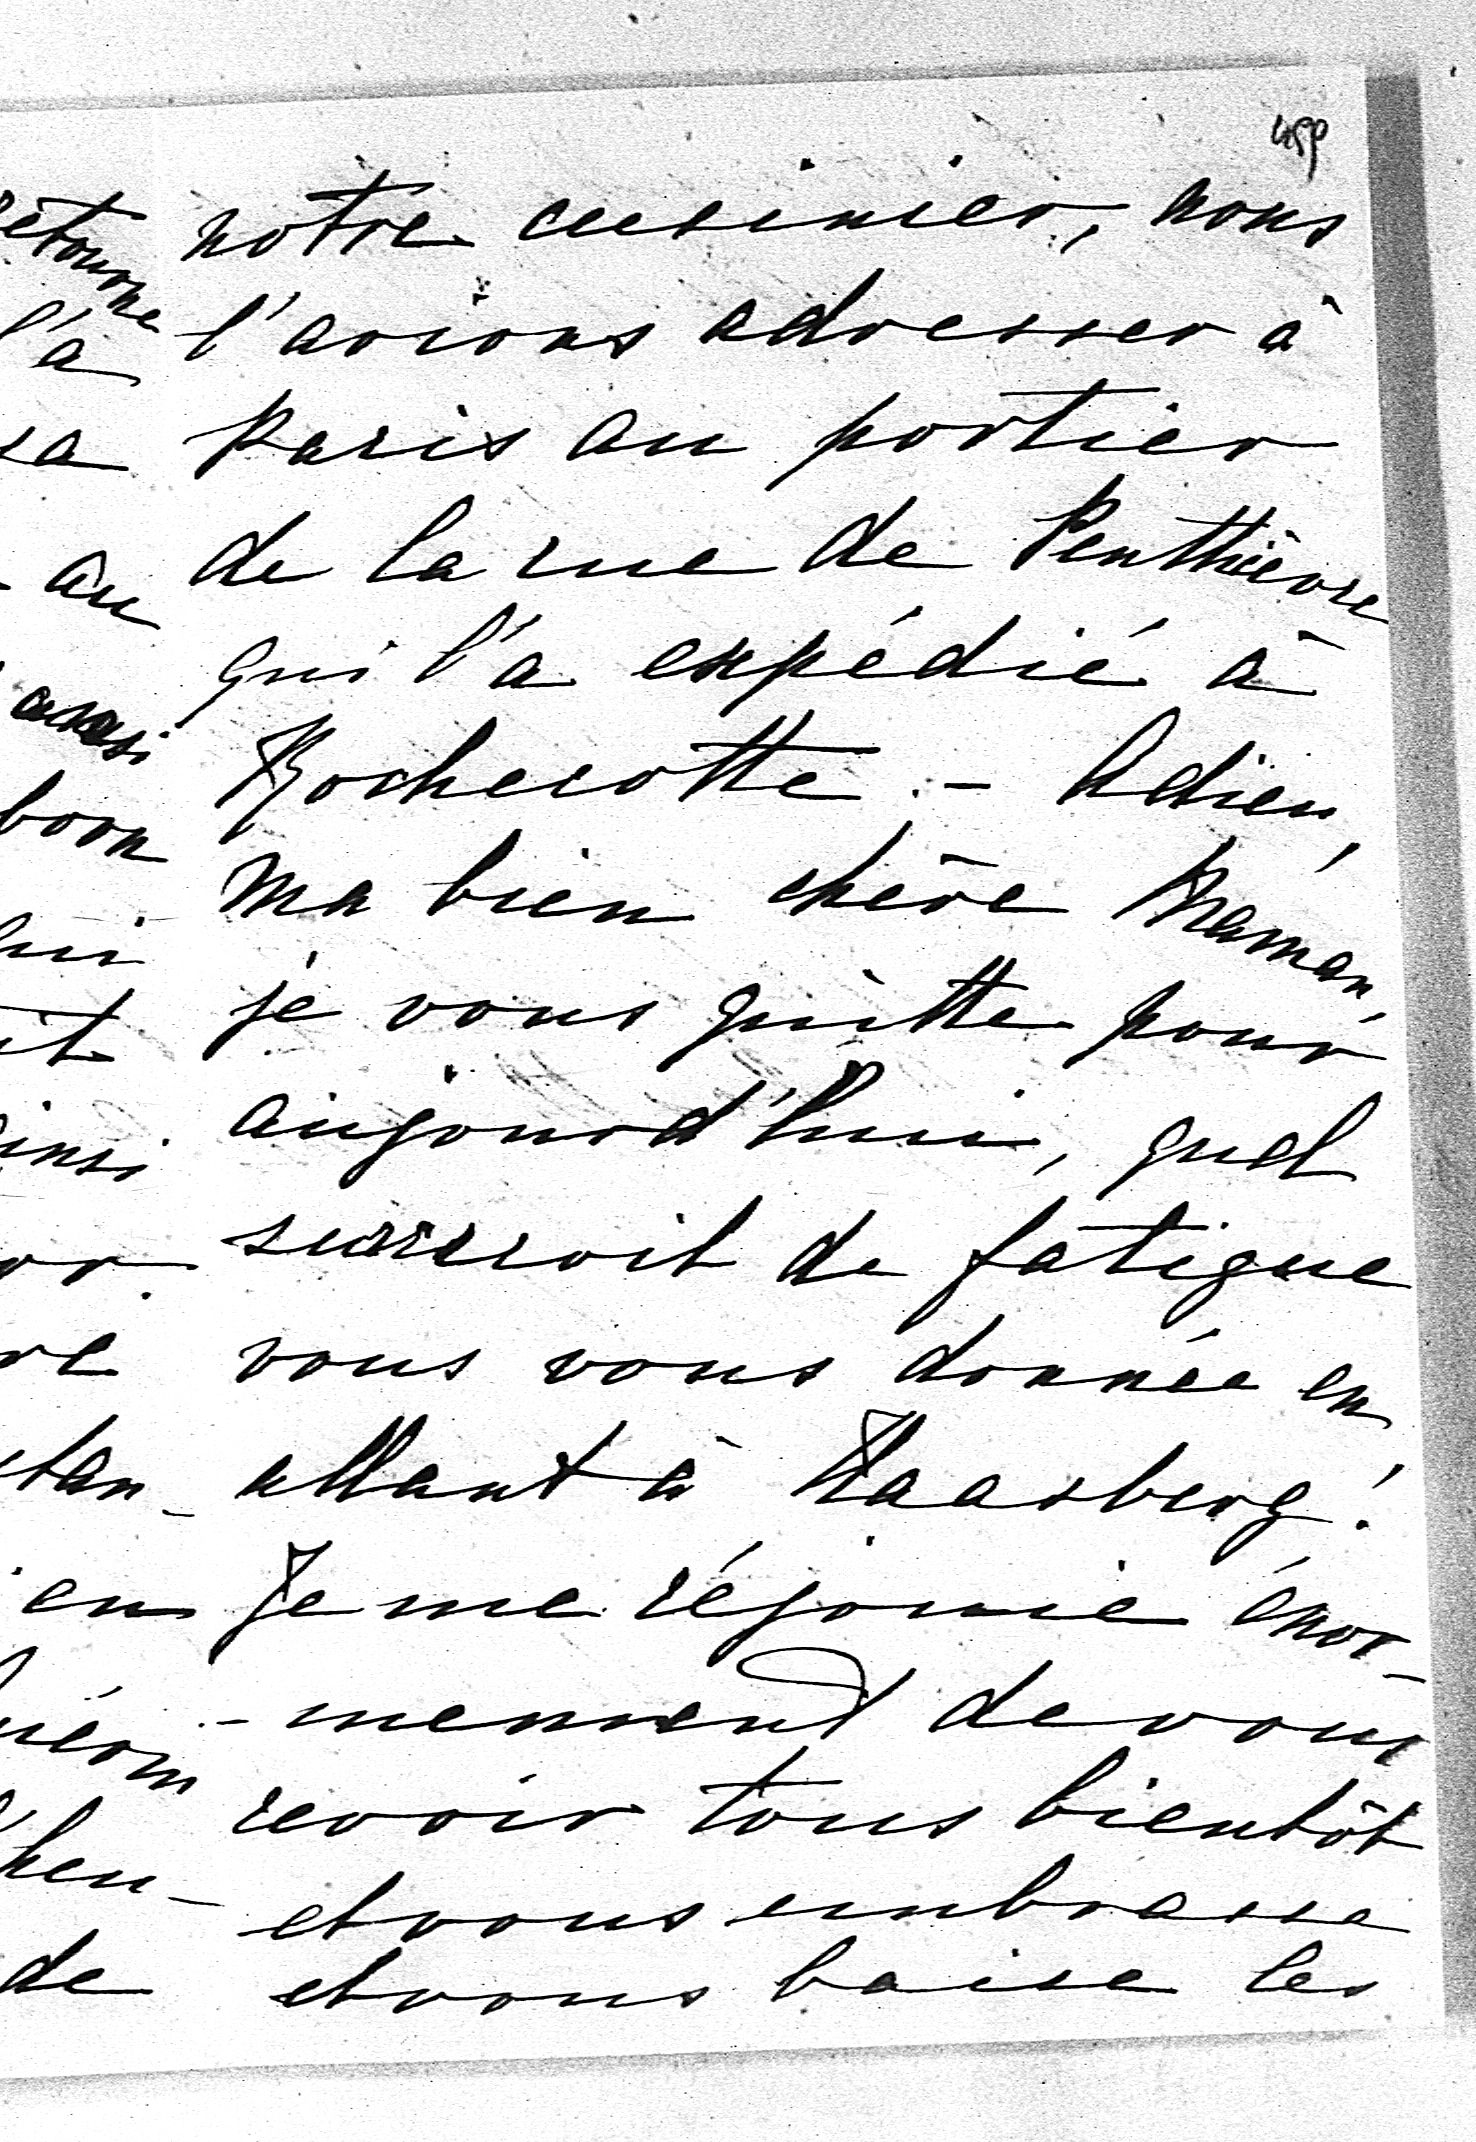 459
notre cuisinier, nous
l'avions adresser à
Paris au portier
de la rue de Penthièvre
qui l'a expédié à
Rochecotte. - Adieu,
ma bien chère Maman,
je vous quitte pour
aujourd'hui, quel
surcroit de fatigue
vous vous donnée en
allant à Haasberg!
Je me réjouie énor-
-mement de vous
revoir tous bientôt
et vous embrasse
et vous baise les
retourne
l'a
sa
au
aussi
boon
lui
it
ainsi
or.
re
stan-
en
heu-
de